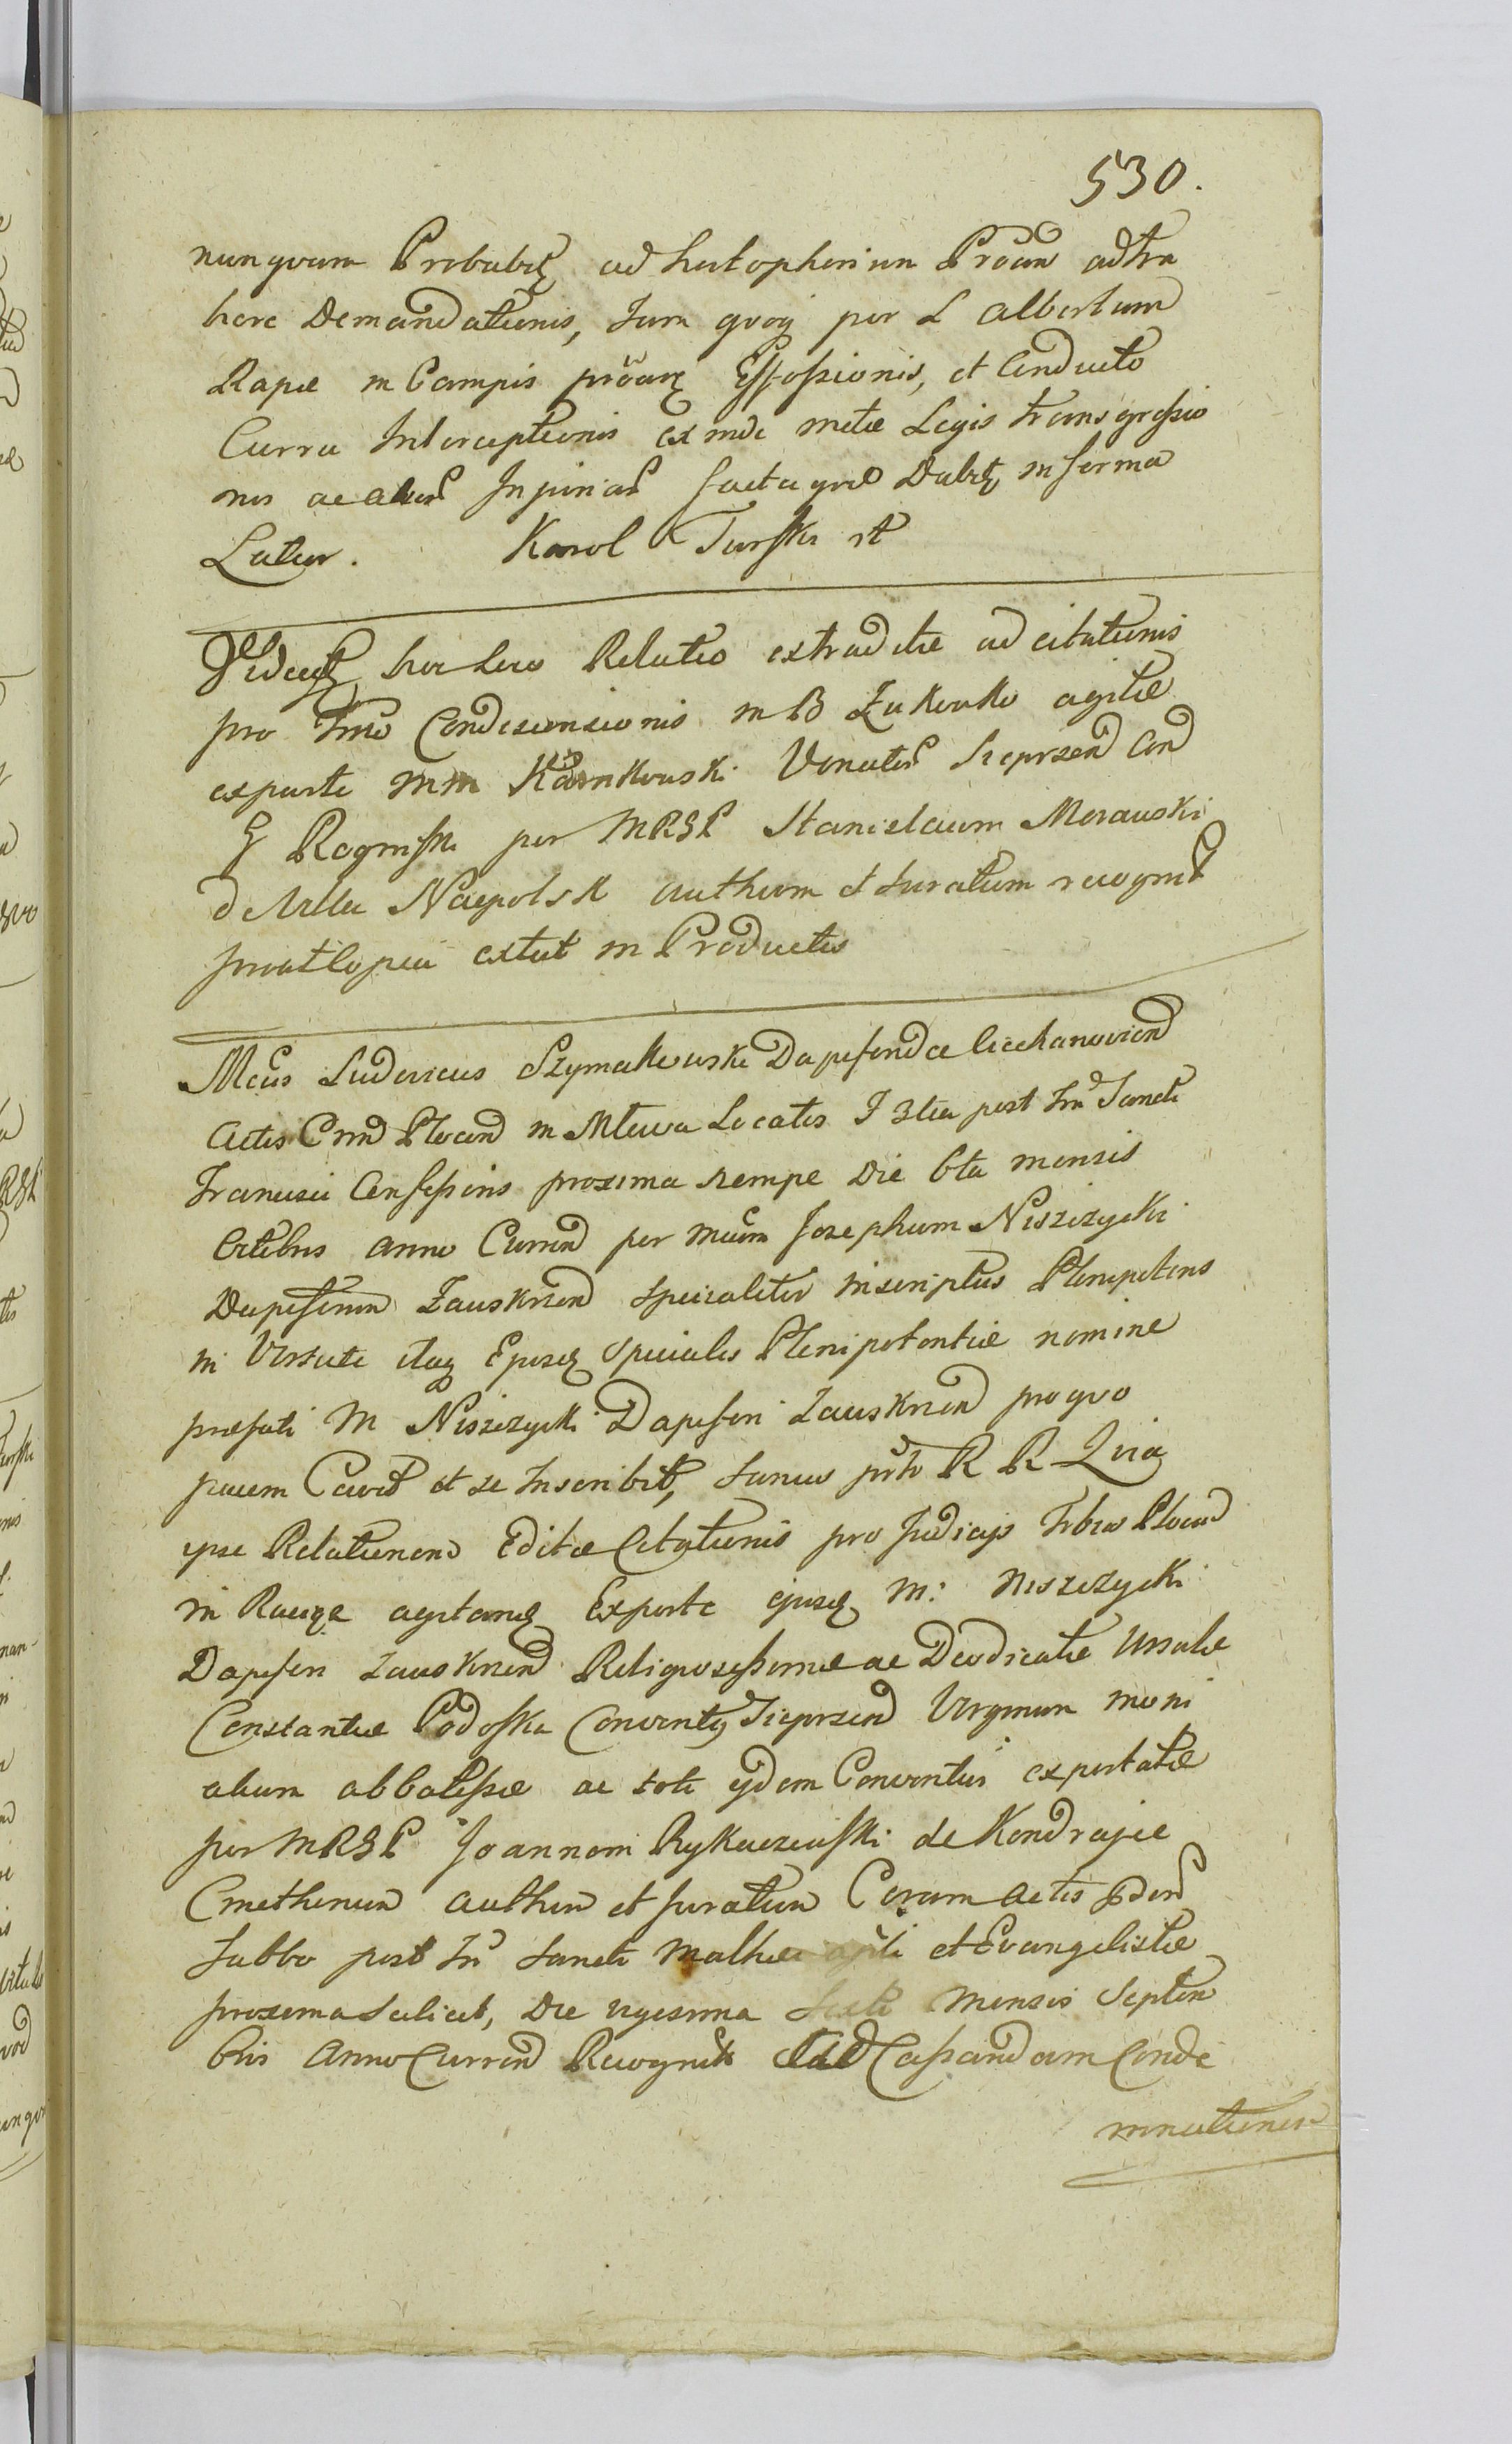 530.
nunquam Probabilr ad hultopherium Proãm adtra
here Demandationis, Jam quoq per L Albertum
Rapa in Campis proãrq Effossionis, et Conducto
Curru Interceptionis ex inde metae Legis transgressio
nis ac aliar Injuriar facta qvae Dabitr in forma
Latior. Karol Turski rt
hoc loco Relatio extraditae ad citationis
pro Trno Condescensionis in B Żukowko agitae
ex parte MM Karnkowski Venator Sieprzen Con
G Roginski per MRGP Stanislaum Morawski
de Villa Naepolsk authum et Juratum recognit
prout copia extat in Productis
Mcus Ludovicus Szymakowski Dapiferida Ciechanovien
Actis Crim Plocen in Mlawa Locatis F 3tia post Fm Sancti
Francisci Confessoris proxima nempe Die 6ta mensis
Octobris Anno Curren per Mcum Josephum Niszczycki
Dapiferum Zauskrnen specialiter inscriptus Plenipotens
in Virtute itaq Ejusd specialis Plenipotentiae nomine
praefati M Niszczycki Dapiferi Zauskrnen pro quo
pacem Cavet et se Inscribit, Sanus prto R R Quia
ipse Relationem Editae Citationis pro Judicijs Trbnor Plocen
in Raciąż agitand Exparte ejusd M: Niszczycki
Dapiferi Zauskrnen Religiosissimae ac Deodicatae Ursulae
Constantiae Podoska Conventus Sieprzen Virginum moni
alium abbatissae ac toti ejdem Conventui exportatae
per MRGP Joannem Rykaczewski de Kondrajec
Cmethonem authen et Juratum Coram Actis
Sabbo post Fm Sancti Mathei apli et Evangelistae
proxima scilicet, Die vigesima Sexta Mensis Septem
bris Anno Curren Recognit Ad Cassandam Conde
mnationem